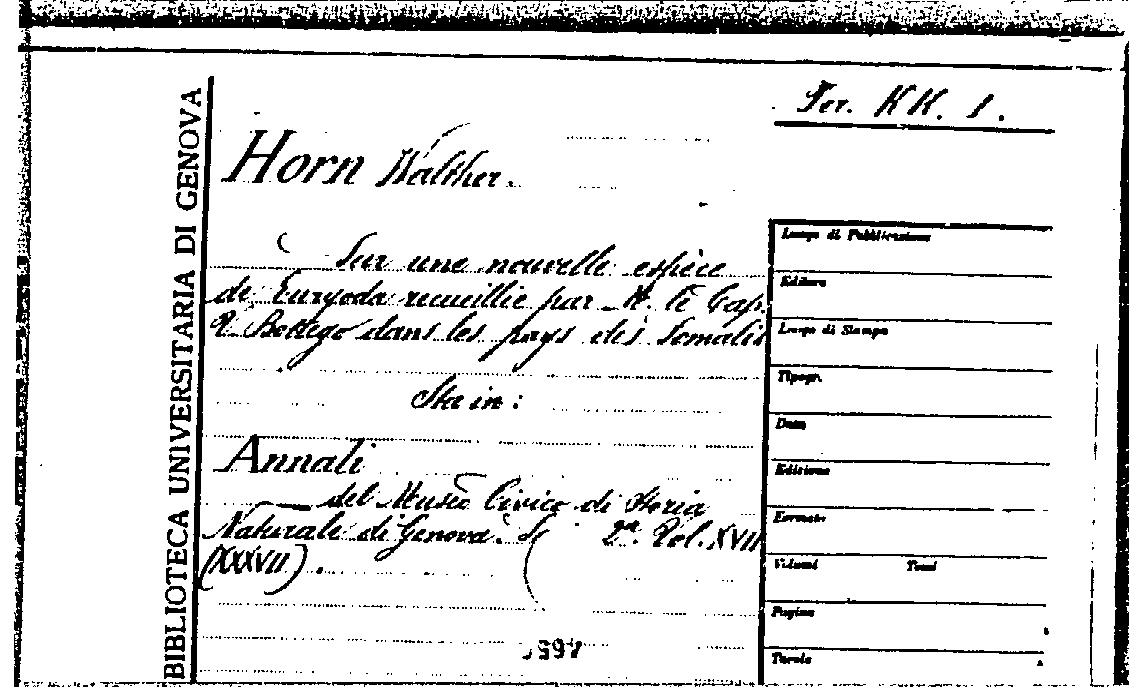 BIBLIOTECA UNIVERSITARIA DI GENOVA
Per. KK. 1.
Horn Walther.
Sur une nouvelle espèce
de Euryoda recueillie par M. le Cap.
V. Bottego dans les pays des Somalis
Sta in:
Annali
del Museo Civico di Storia
Naturale di Genova. S. 2ª. Vol. XVII
(XXXVII).
Luogo di Pubblicazione
Editore
Luogo di Stampa
Tipogr.
Data
Edizione
Formato
Volumi Tomi
Pagine
Tavole